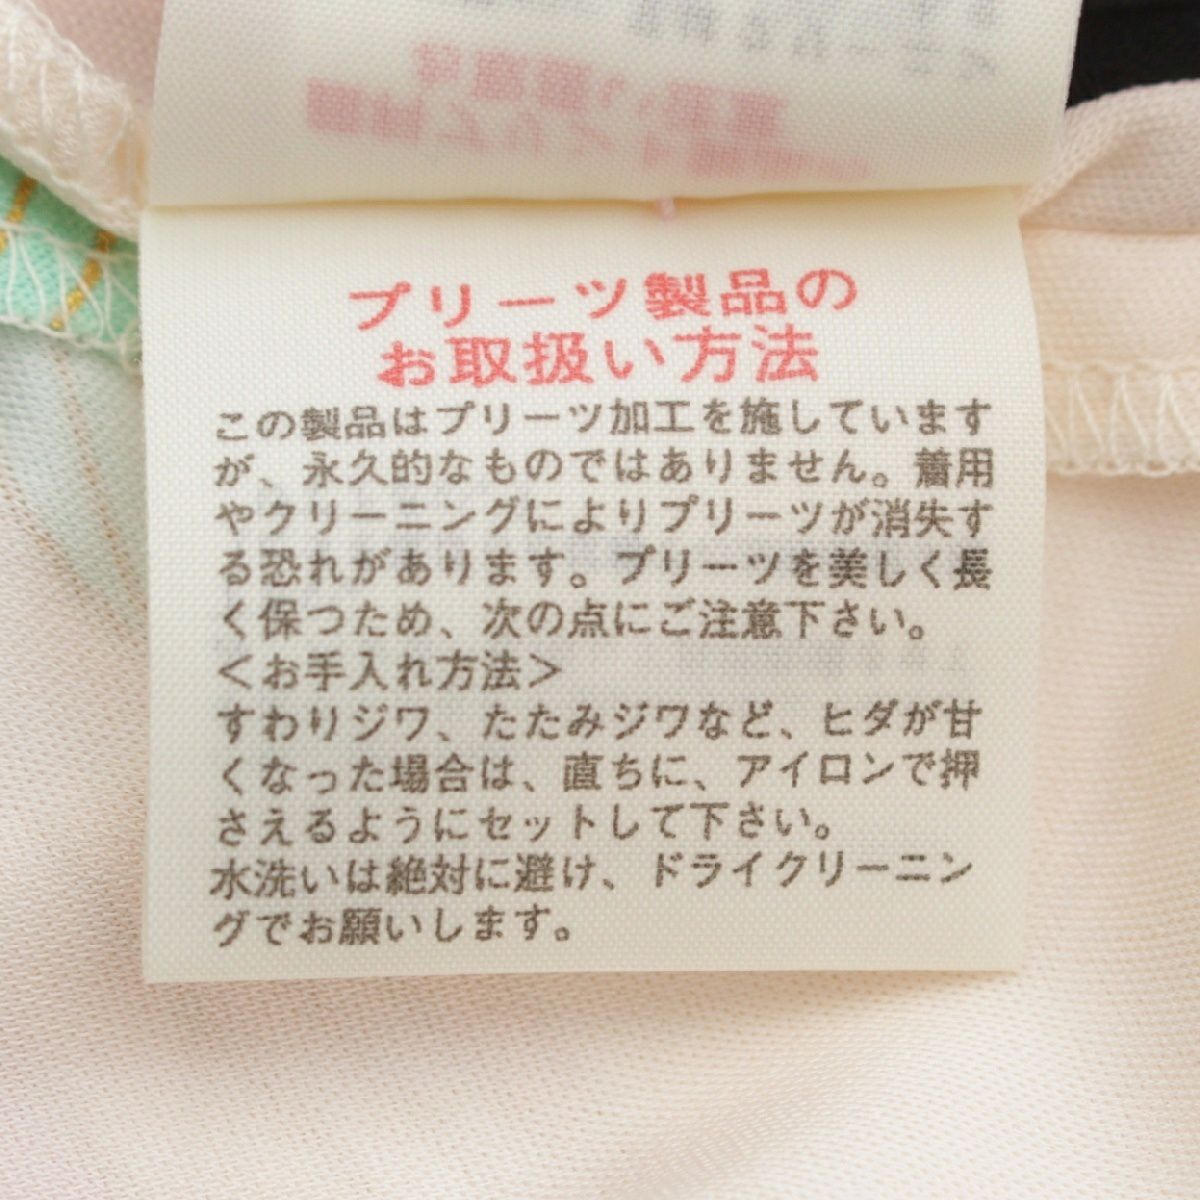 プリーツ製品の
お取扱い方法
この製品はプリーツ加工を施しています
が、永久的なものではありません。着用
やクリーニングによりプリーツが消失す
る恐れがあります。プリーツを美しく長
く保つため、次の点にご注意下さい。
＜お手入れ方法＞
すわりジワ、たたみジワなど、ヒダが甘
くなった場合は、直ちに、アイロンで押
さえるようにセットして下さい。
水洗いは絶対に避け、ドライクリーニン
グでお願いします。